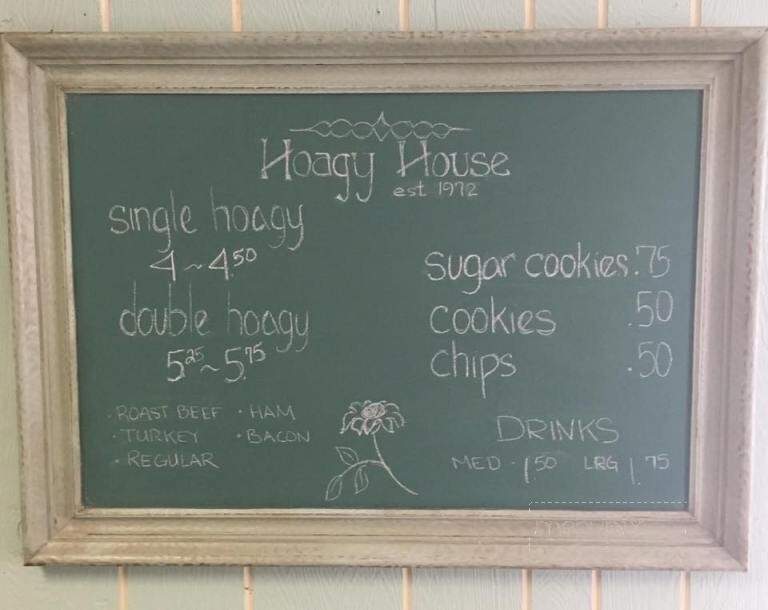 Hoagy House
est 1972
single hoagy
4 ~ 4.50
double hoagy
5.25 ~ 5.75
· ROAST BEEF · HAM
· TURKEY · BACON
· REGULAR
sugar cookies .75
cookies .50
chips .50
DRINKS
MED - 1.50 LRG 1.75